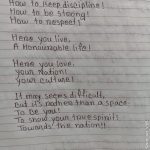 How to keep discipline!
How to be strong!
How to respect!
Here you live,
A Honourable life!
Here you love,
your nation!
your culture!
It may seems difficult,
but it's rather than a space
To be you!
To show your true spirit!
Towards the nation!!